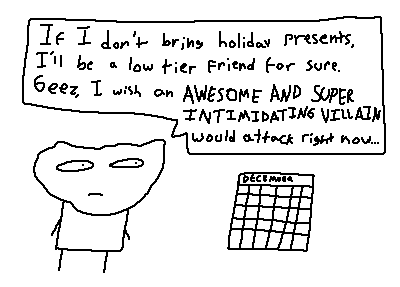 If I don't bring holiday presents,
I'll be a low tier friend for sure.
Geez, I wish an AWESOME AND SUPER
INTIMIDATING VILLAIN
would attack right now...
DECEMBER